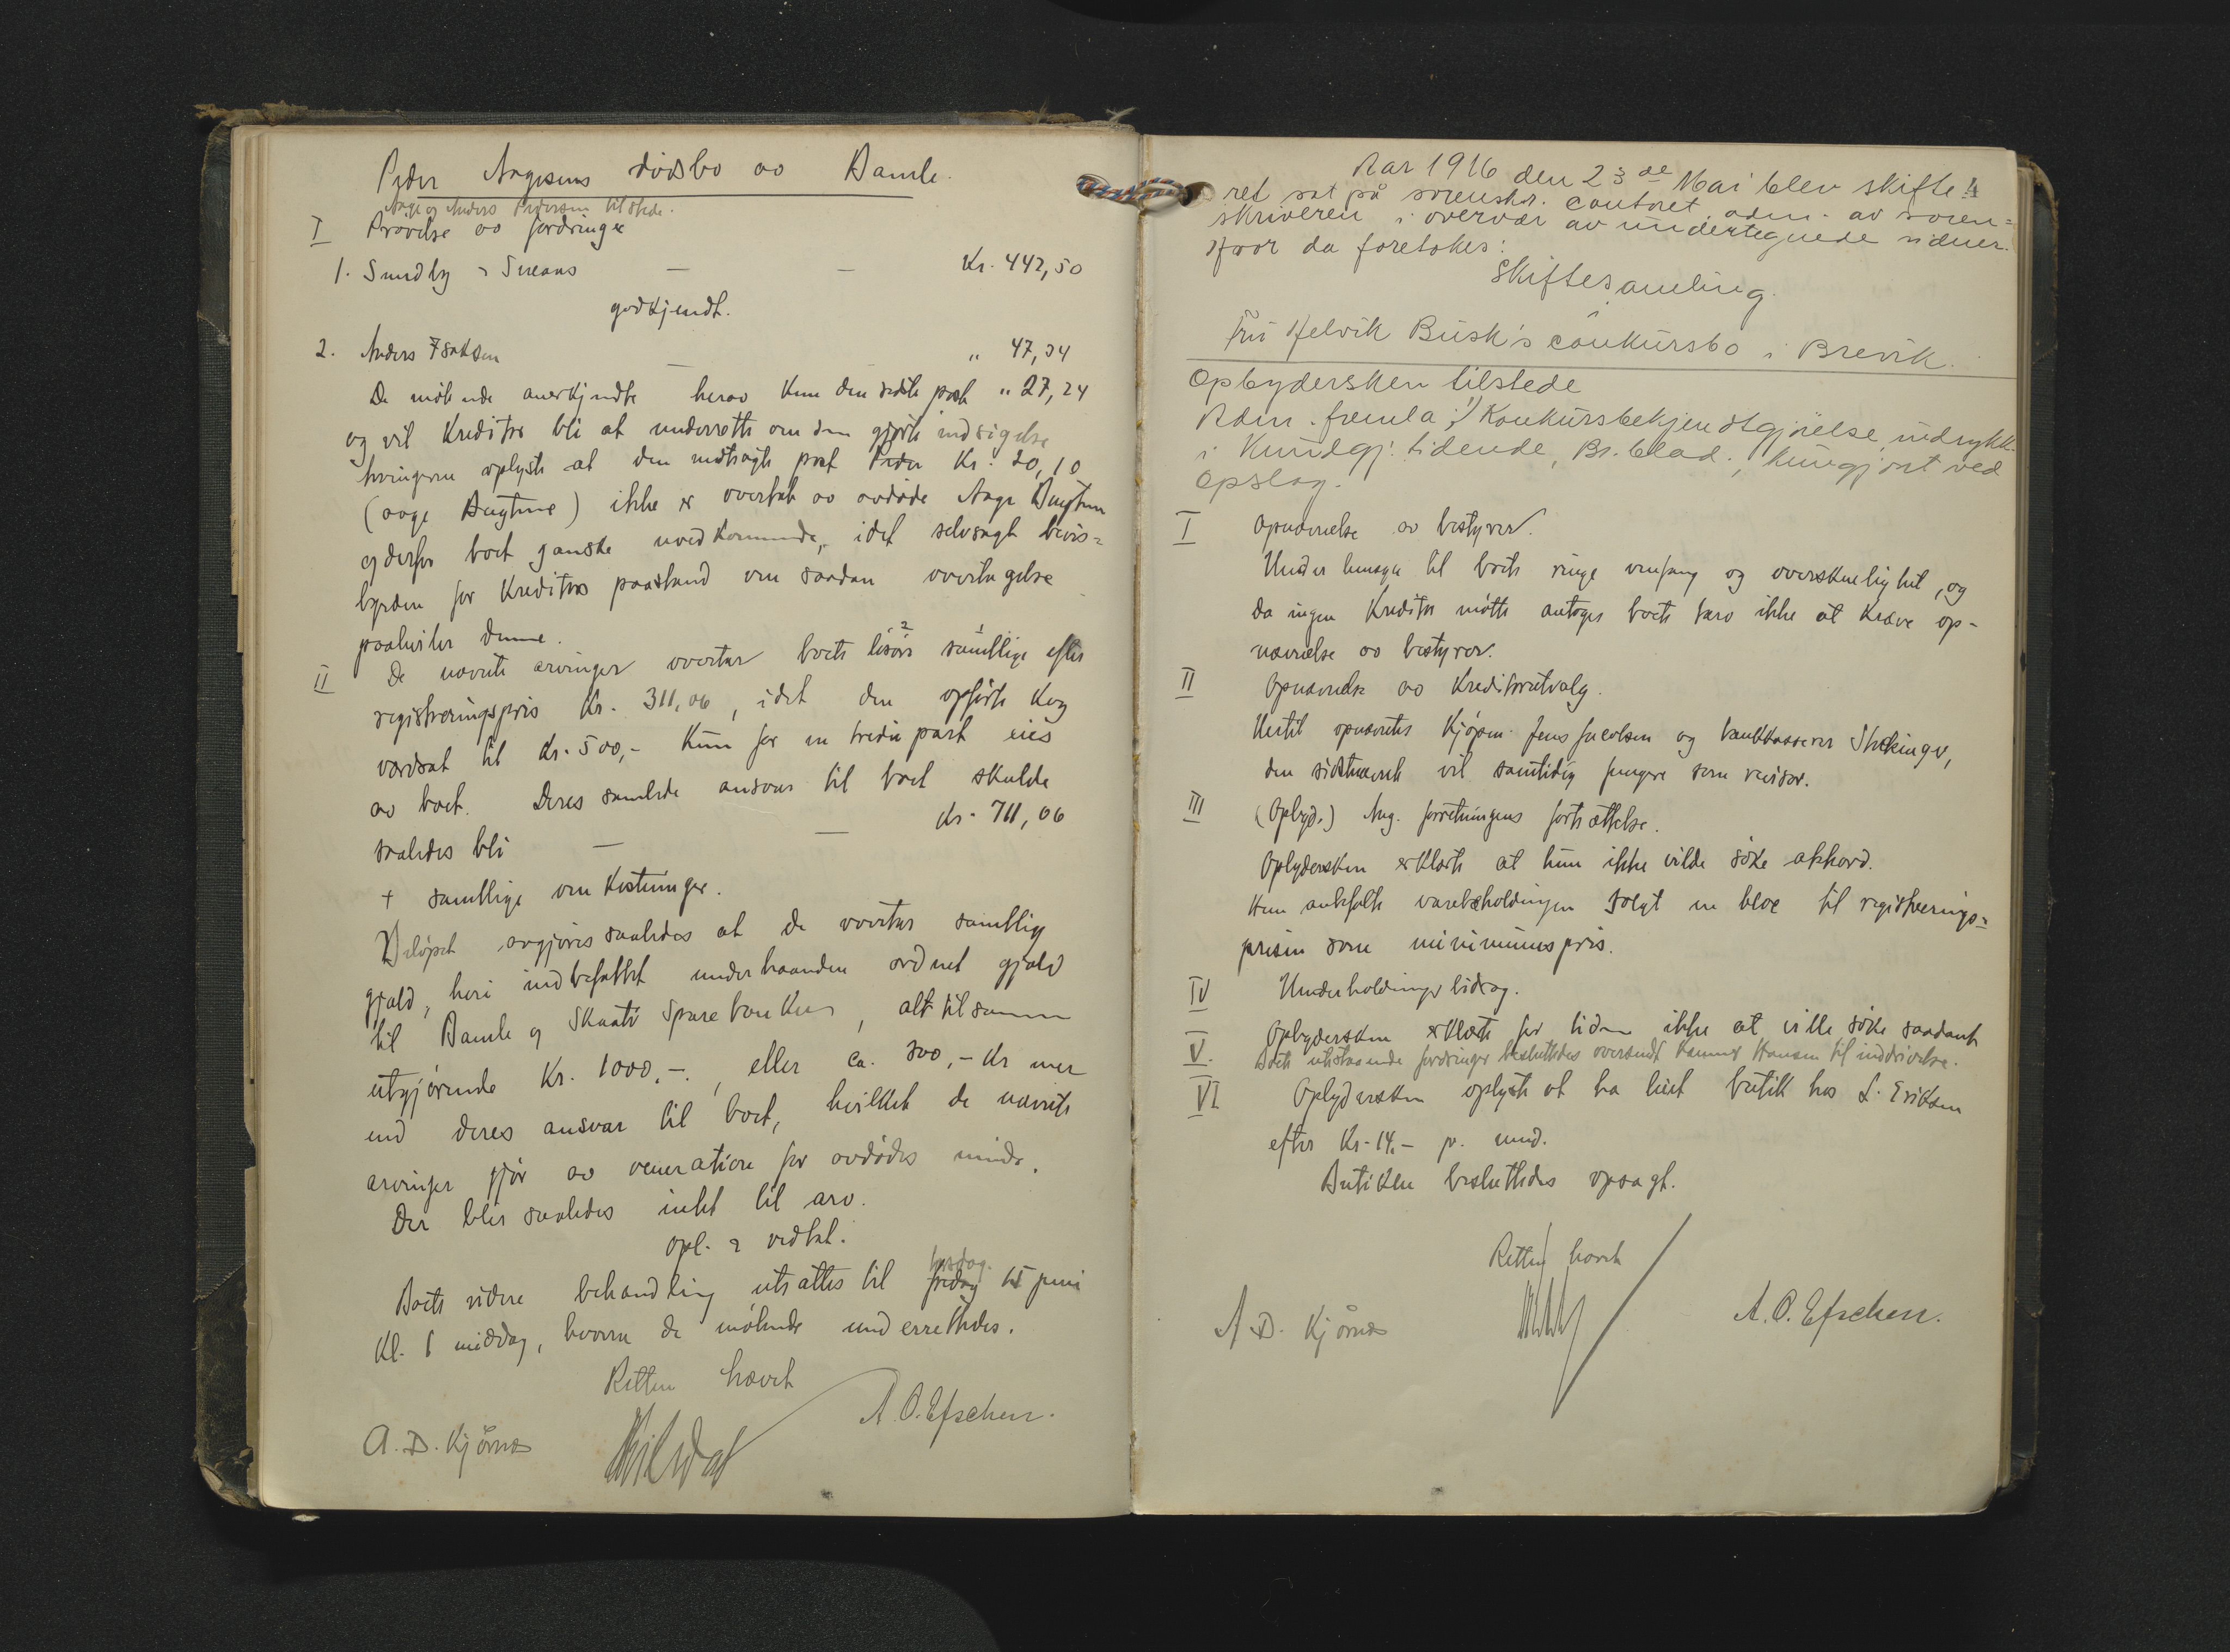 Peder Aagesens dødsbo av Bamle.
Aage og Anders Pedersen tilstede.
I Prøvelse av fordringer
1. Sundby & Sveaas — — Kr. 442,50
godkjendt.
2. Anders Isaksen — " 47,34
De møtende anerkjendte herav kun den sidste post " 27,24
og vil kreditor bli at underrette om den gjorte indsigelse
arvingerne oplyste at den medtagte post Peder Kr. 20,10
(aage Bugtene) ikke er overtat av avdøde Aage
og derfor boet ganske uvedkommende, idet selvsagt bevis=
byrden for kreditors paastand om saadan overtagelse
paahviler denne.
II De nævnte arvinger overtar boets løsøre samtlige efter
registreringspris Kr. 311,06, idet den opførte
værdsat til Kr. 500,- kun for en tredie part eies
av boet. Deres samlede ansvar til boet skulde
saaledes bli — — Kr. 711,06
+ samtlige omkostninger.
Beløpet avgjøres saaledes at de overtar samtlig
gjæld, heri indbefattet underhaanden ordnet gjæld
til Bamle og Skaatø Sparebanker, alt tilsammen
utgjørende Kr. 1000,-, eller ca. 300,- Kr mer
end deres ansvar til boet, hvilket de nævnte
arvinger gjør av veneration for avdødes minde.
Der blir saaledes intet til arv.
Opl. & vedtat.
Boets videre behandling utsættes til fredag juni
tirsdag
Kl. 1 middag, hvorom de møtende underrettedes.
Retten hævet
A. D. Kjørnæs A. O. Efschen.
Aar 1916 den 23de Mai blev skifte
4
ret sat på sorenskr. contoret, adm. av soren=
skriveren i overvær av undertegnede vidner.
Hvor da foretokes:
Skiftesamling.
Fru Helvik Busk's conkursbo i Brevik.
Opbydersken tilstede
Adm. fremla: 1) Konkursbekjendtgjørelse indrykk.
i Kundgj. tidende, Br. blad., kungjort ved
opslag.
I Opnævnelse av bestyrer.
Under hensyn til boets ringe omfang og overskuelighet, og
da ingen kreditor møtte antoges boets tarv ikke at kræve op-
nævnelse av bestyrer.
II Opnævnelse av kreditorutvalg.
Hertil opnævntes Kjøpm. Jens Jacobsen og bankkasserer
den sidstnævnte vil samtidig fungere som revisor.
III (Opbyd.) Ang. forretningens fortsættelse.
Opbydersken erklærte at hun ikke vilde søke akkord.
Hun anbefalte varebeholdningen solgt en bloc til registrerings=
prisen som minimumspris.
IV Underholdningsbidrag.
Opbydersken erklærte for tiden ikke at ville søke saadant
V. Boets utestaaende fordringer besluttedes oversendt Hansen til inddrivelse.
VI Opbydersken oplyste at ha leiet butik hos L. Eriksen
efter Kr. 14.- pr. mnd.
Butikken besluttedes opsagt.
Retten hævet
A. D. Kjørnæs A. O. Efschen.